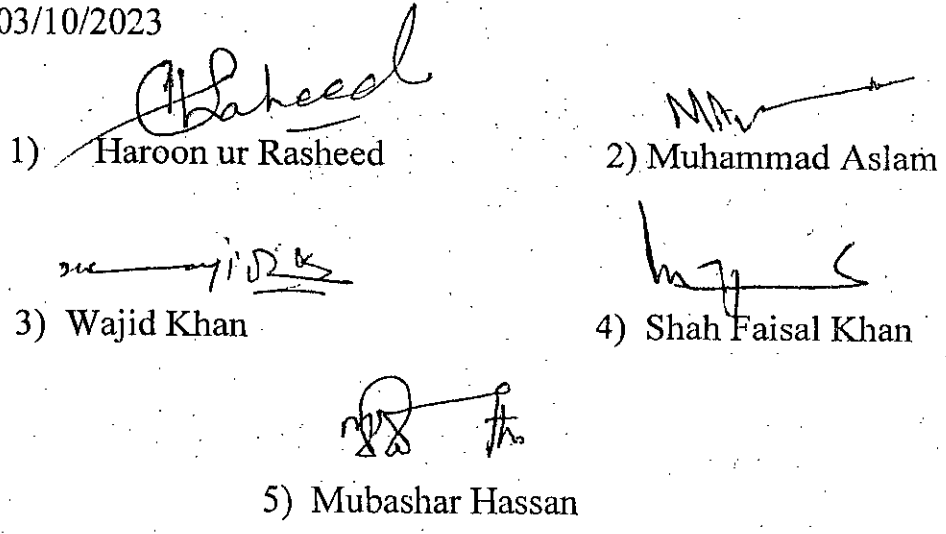 03/10/2023
Rasheed
1) Haroon ur Rasheed
2) Muhammad Aslam
3) Wajid Khan
4) Shah Faisal Khan
5) Mubashar Hassan